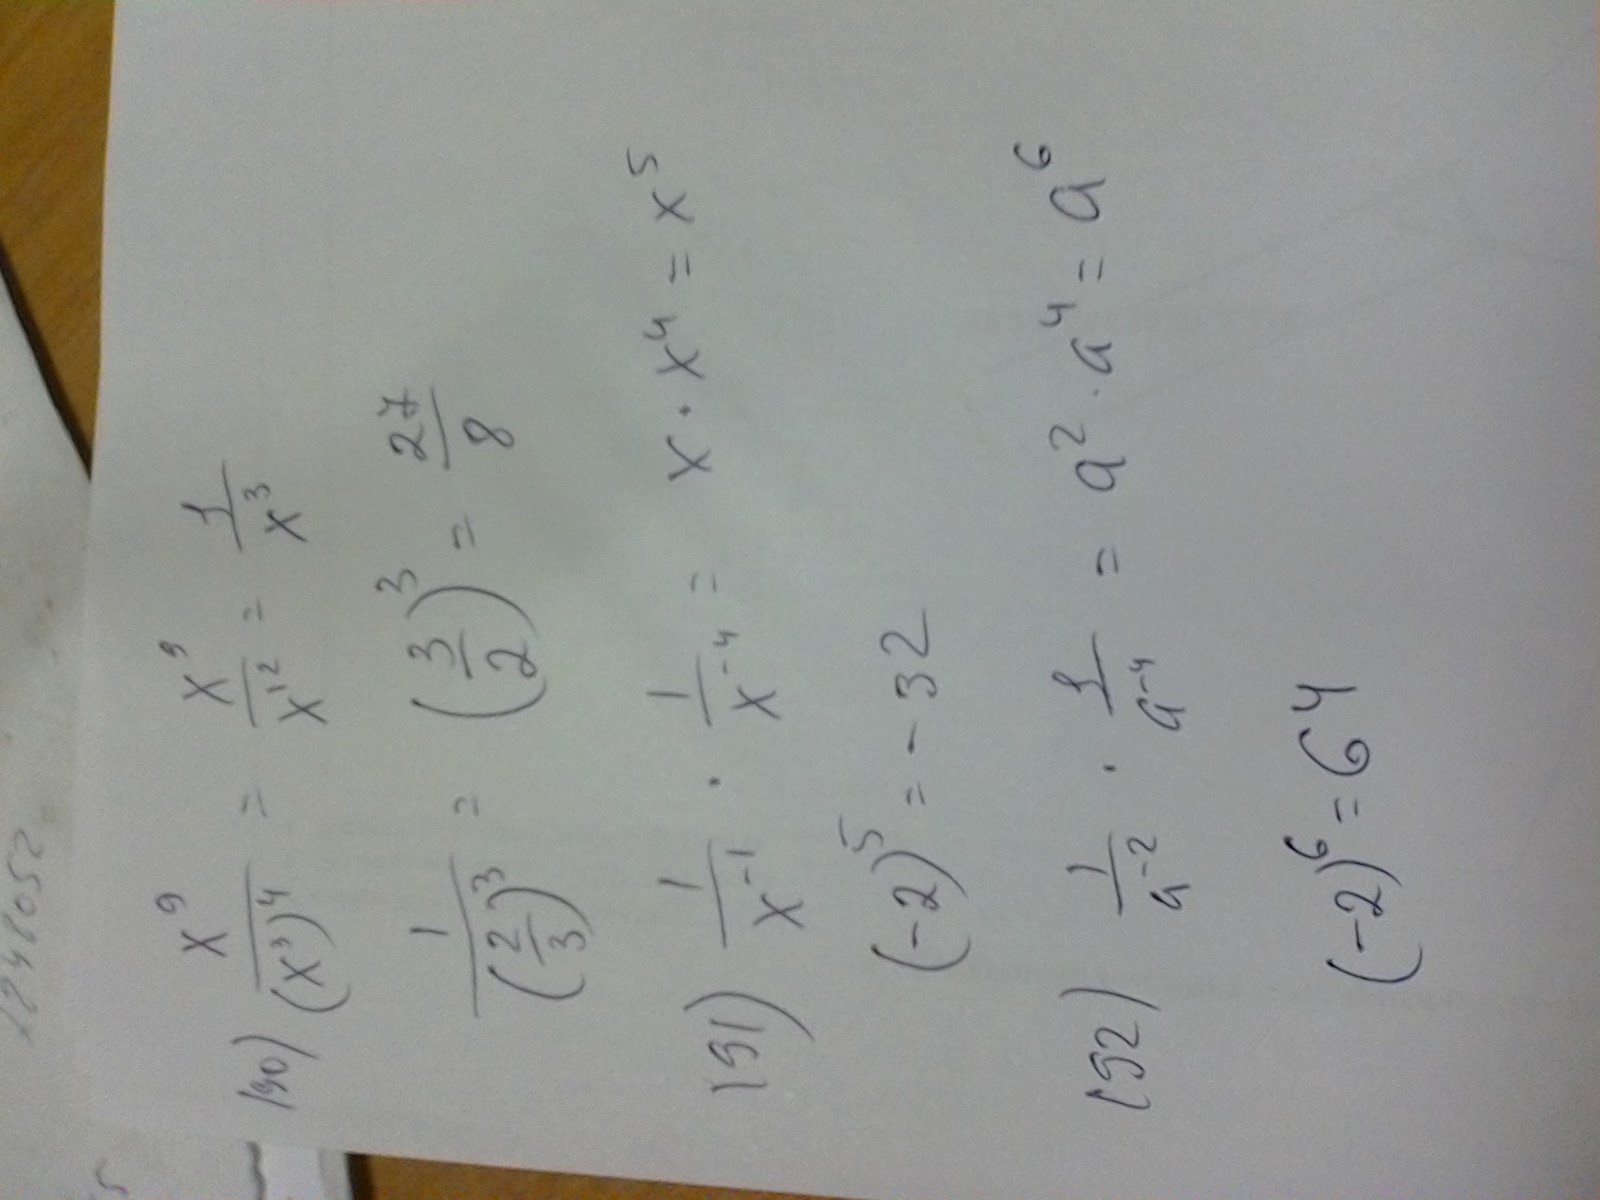 190) x⁹/(x³)⁴ = x⁹/x¹² = 1/x³
1/(2/3)³ = (3/2)³ = 27/8
191) 1/x⁻¹ · 1/x⁻⁴ = x · x⁴ = x⁵
(-2)⁵ = -32
192) 1/a⁻² · 1/a⁻⁴ = a² · a⁴ = a⁶
(-2)⁶ = 64